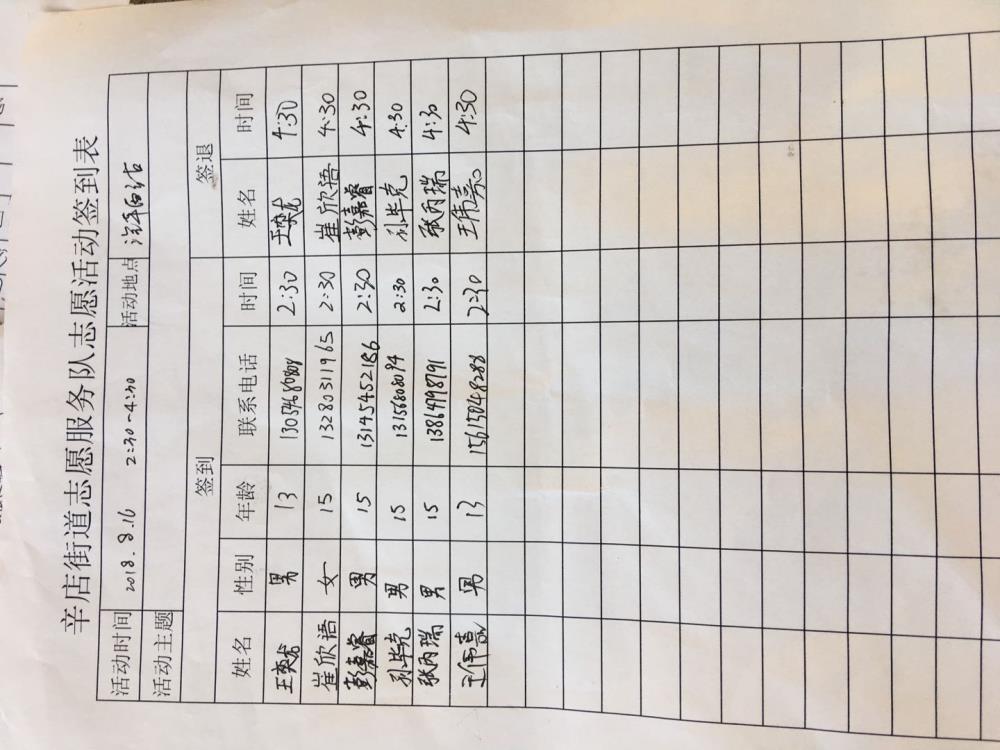 辛店街道志愿服务队志愿活动签到表
活动时间 2018.8.16 2:30-4:30 活动地点
活动主题
签到 签退
姓名 性别 年龄 联系电话 时间 姓名 时间
王奕龙 男 13 2:30 王奕龙 4:30
崔欣语 女 15 13280311965 2:30 崔欣语 4:30
彭嘉睿 男 15 13145452186 2:30 彭嘉睿 4:30
孙毕克 男 15 13156808094 2:30 孙毕克 4:30
张丙瑞 男 15 13864798791 2:30 张丙瑞 4:30
王伟嘉 男 13 15615048288 2:30 王伟嘉 4:30